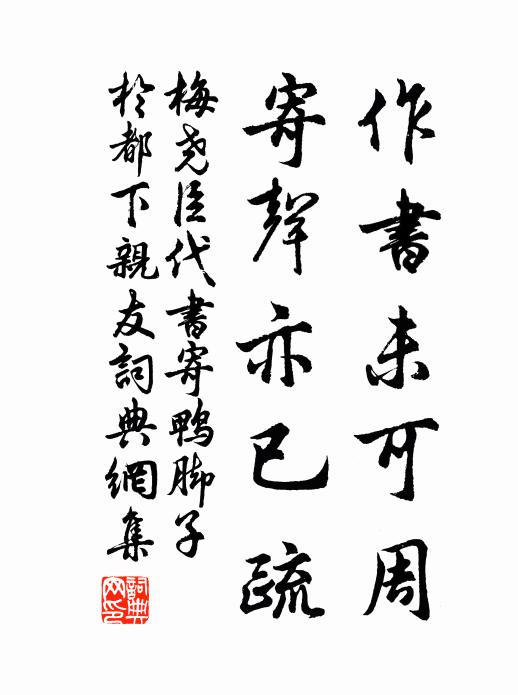 作書未可周
寄聲亦已疏
梅堯臣代書寄鴨脚子
於都下親友詞典網集
詞典网印